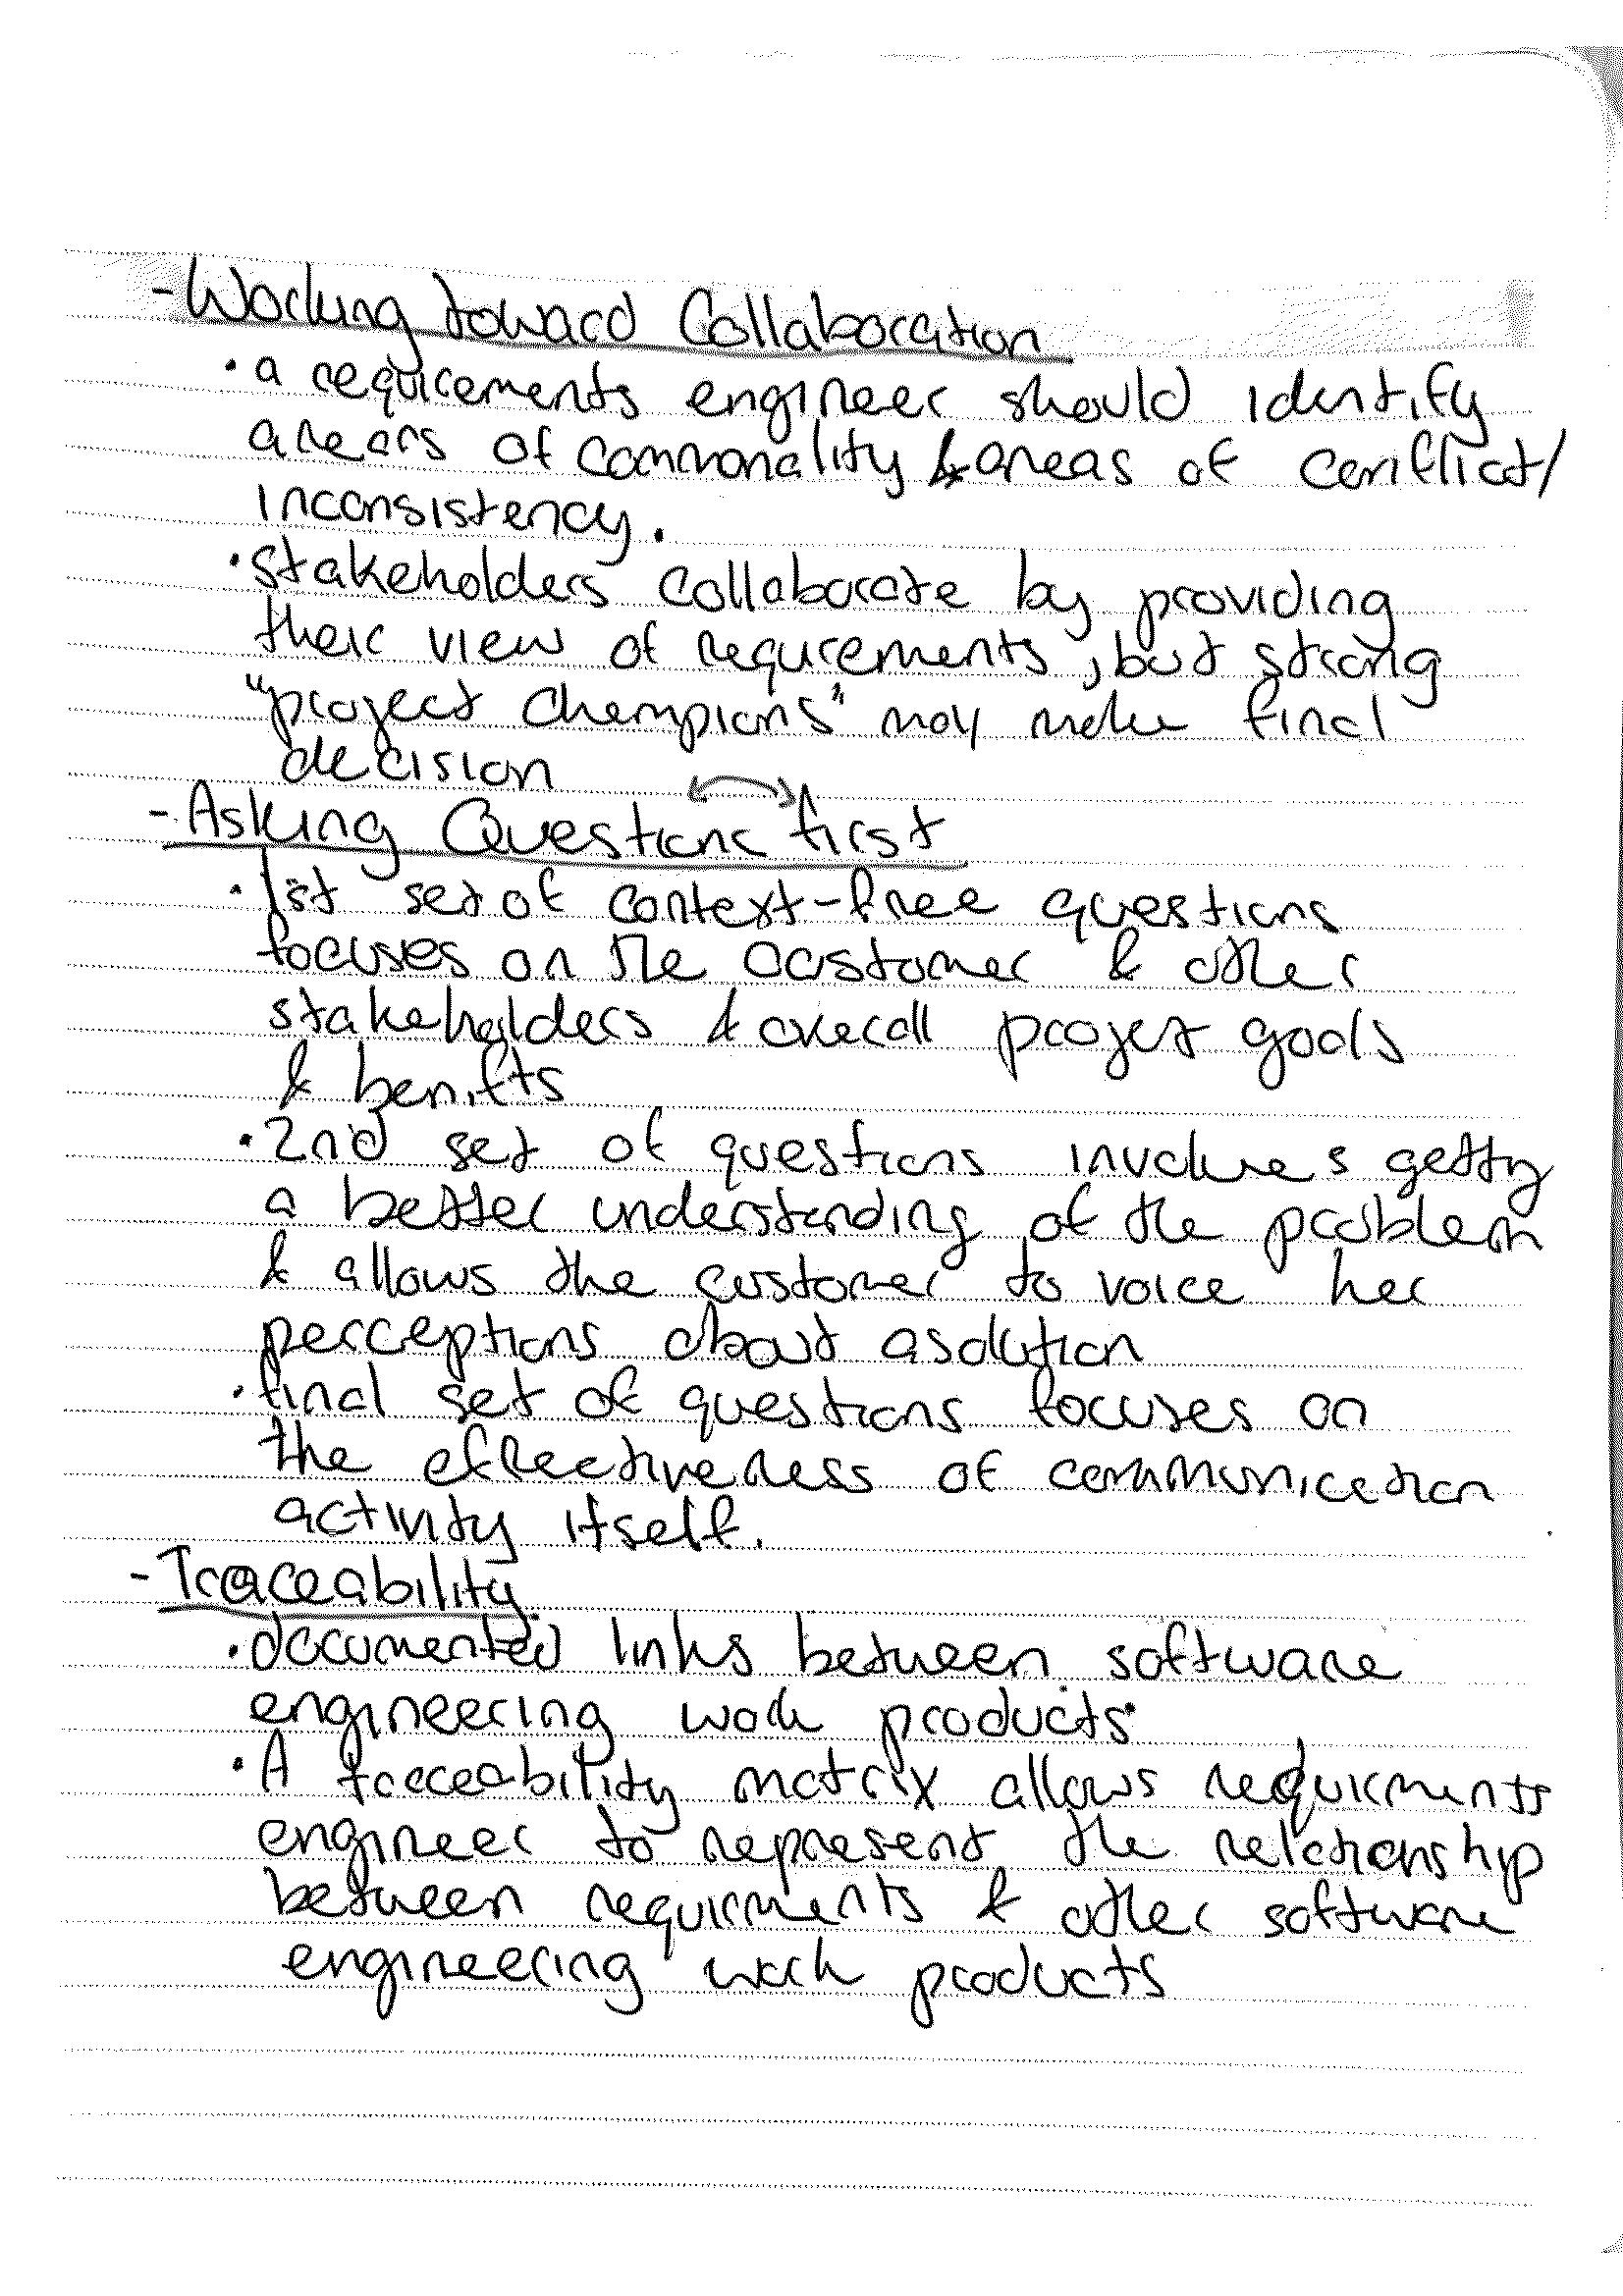 - Working toward Collaboration
• a requirements engineer should identify
areas of commonality & areas of conflict/
inconsistency.
• stakeholders collaborate by providing
their view of requirements, but strong
"project champions" may make final
decision
- Asking Questions first
• 1st set of context-free questions
focuses on the customer & other
stakeholders & overall project goals
& benifts
• 2nd set of questions involves getting
a better understanding of the problem
& allows the customer to voice her
perceptions about a solution
• final set of questions focuses on
the effectiveness of communication
activity itself.
- Traceability
• documented links between software
engineering work products
• A traceability matrix allows requirments
engineer to represent the relationship
between requirments & other software
engineering work products